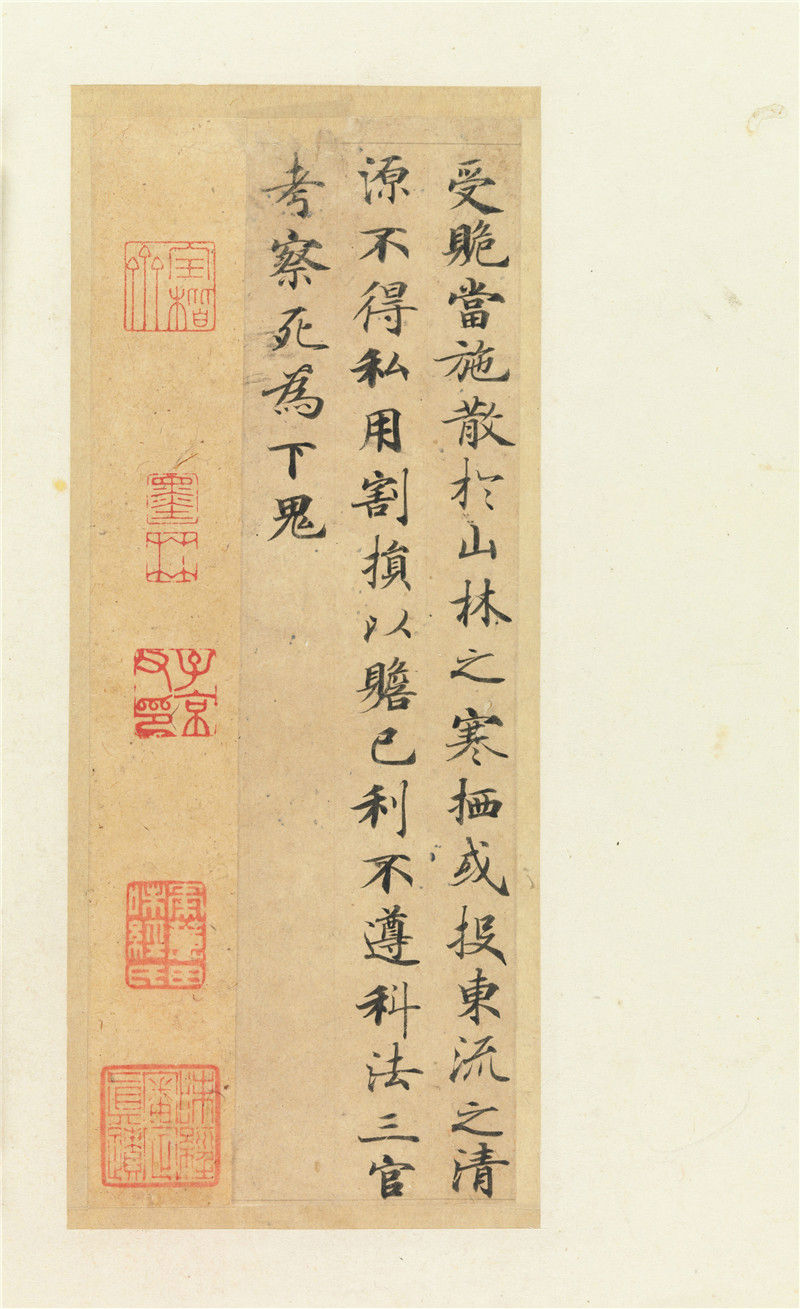 受贍當施散於山林之寒栖或投東流之清
源不得私用割損以贍己利不遵科法三官
考察死為下鬼
墨林
子京
父印